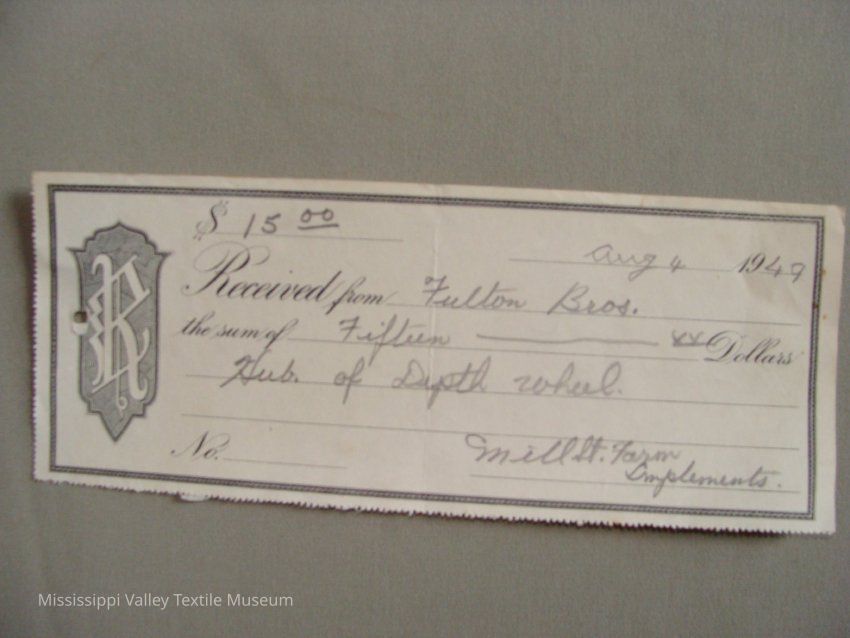 $ 15 00
Aug 4 1949
Received from Fulton Bros.
the sum of Fifteen xx Dollars
Hub. of Depth wheel.
No. Mill St. Farm
Implements.
Mississippi Valley Textile Museum